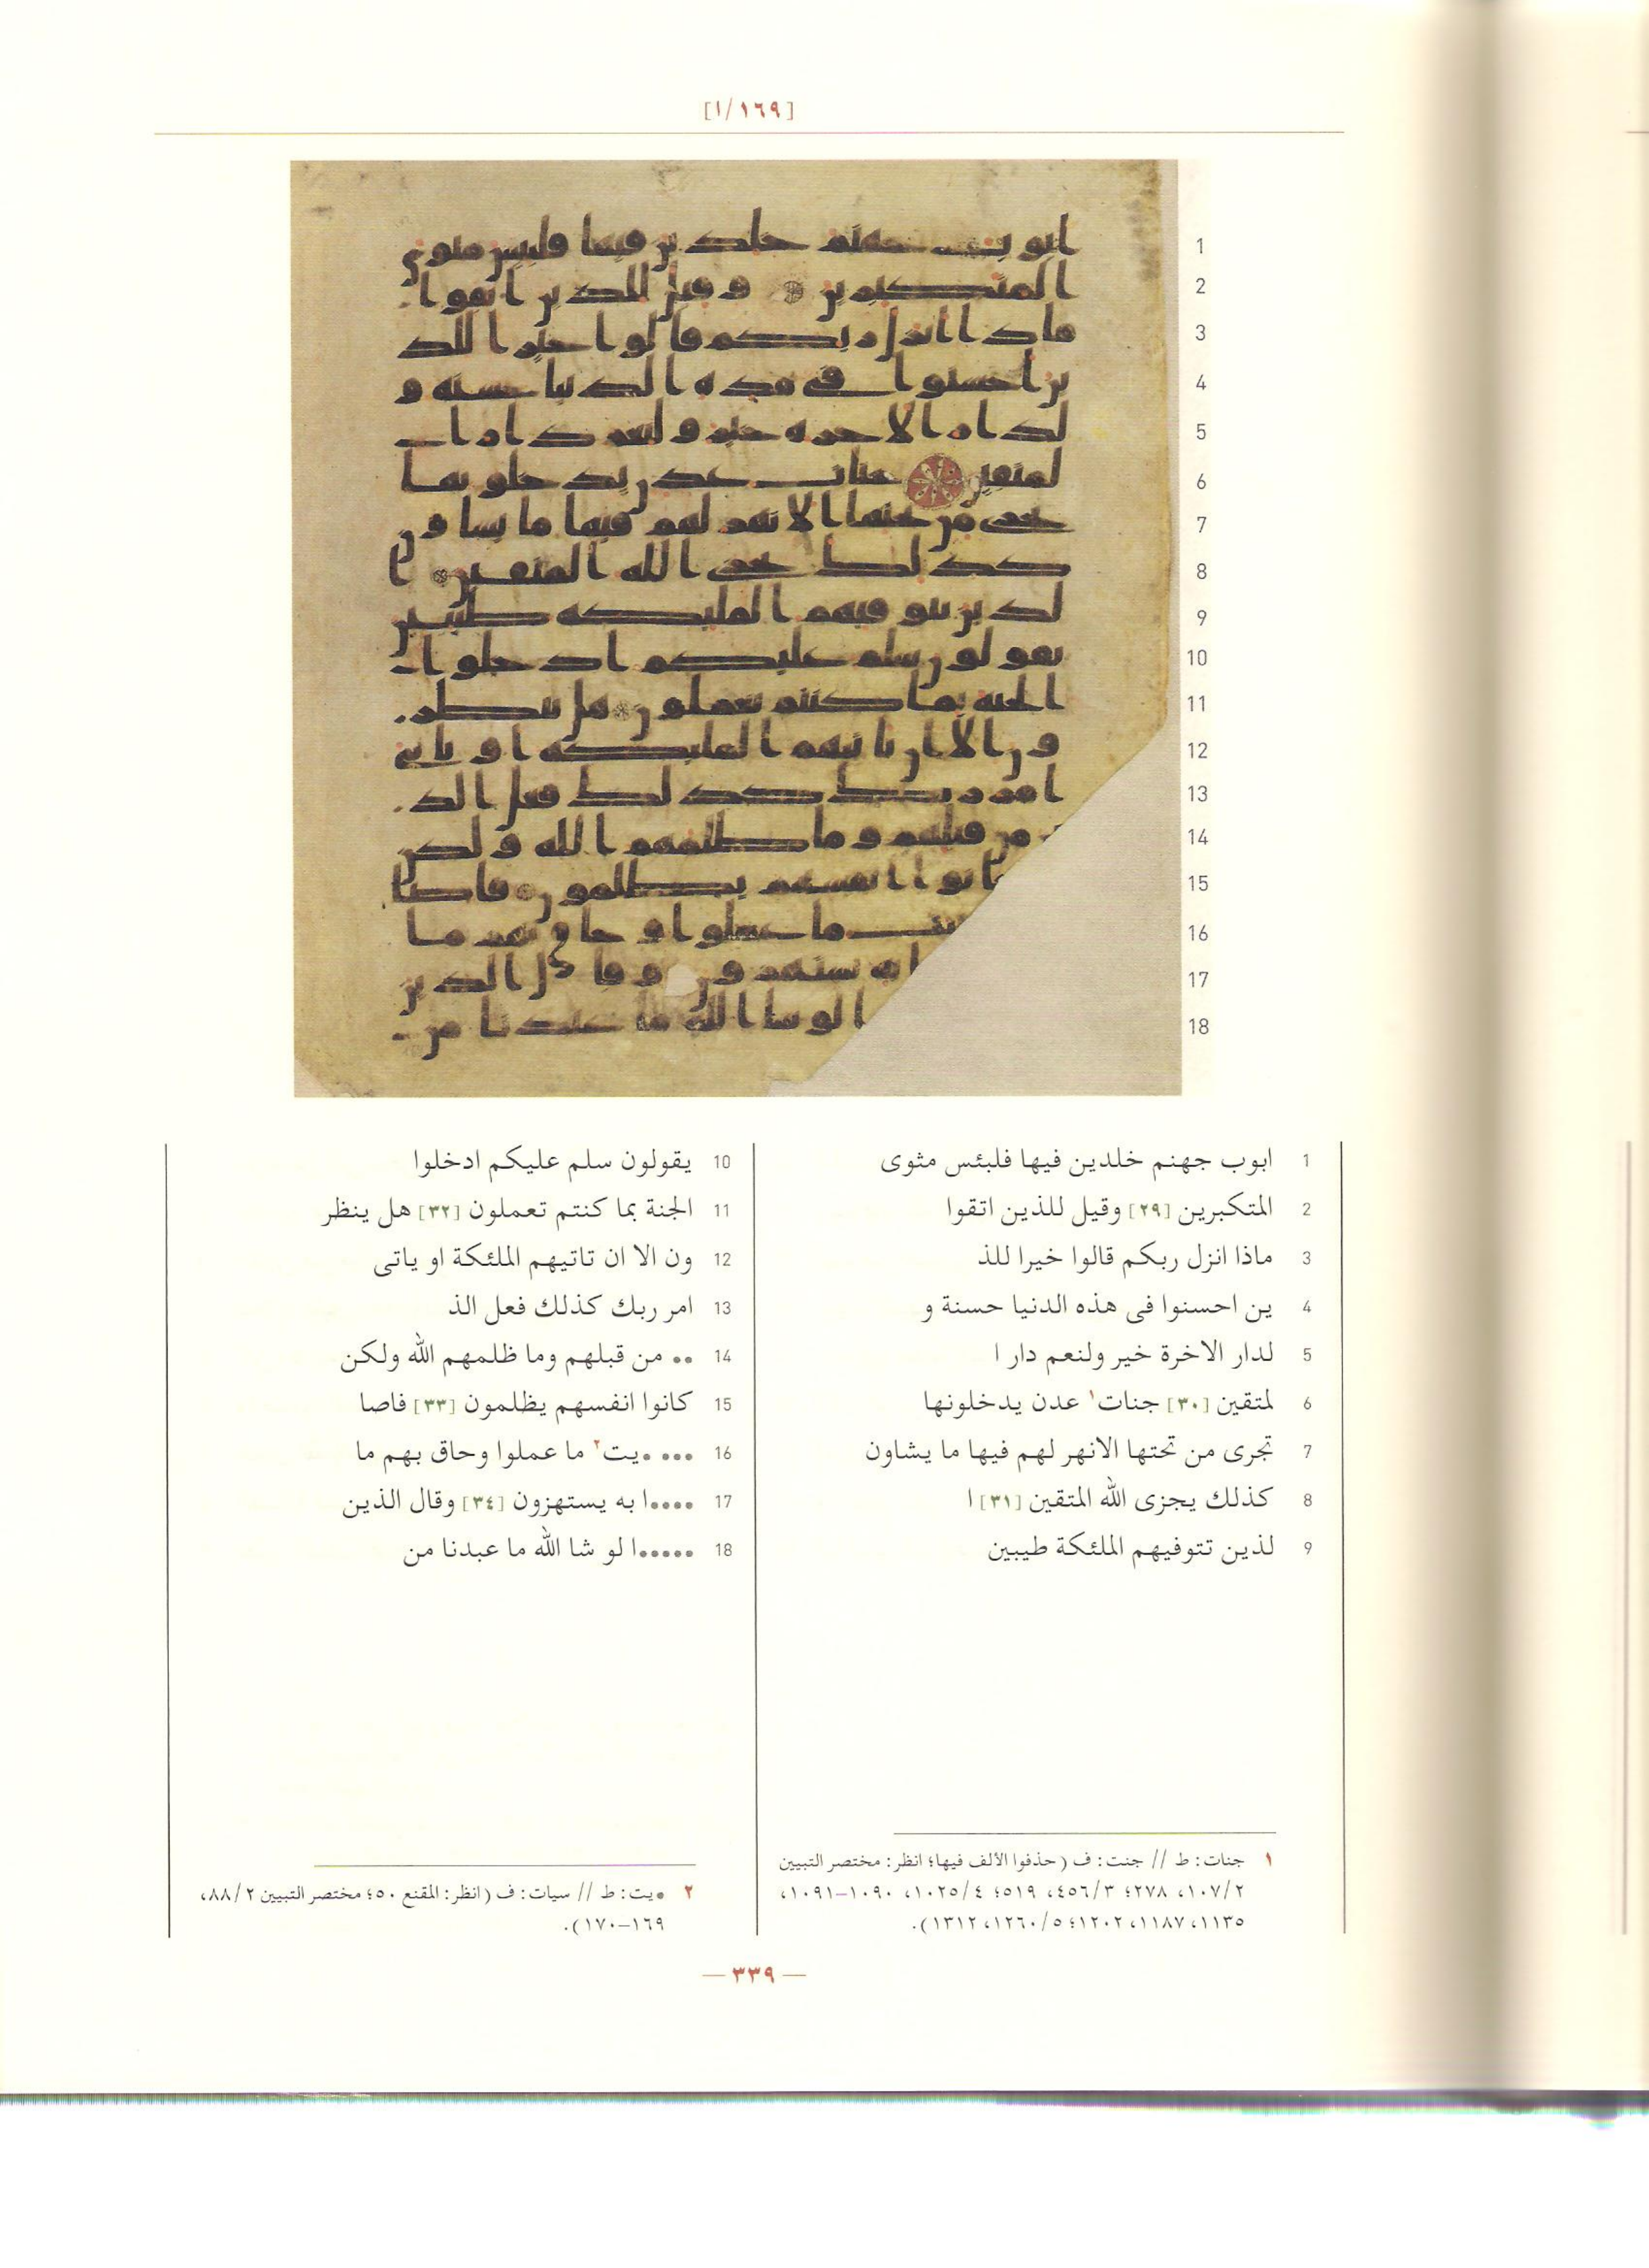 [١/١٦٩]
1 ابوب جهنم خلدين فيها فلبئس مثوى
2 المتكبرين [٢٩] وقيل للذين اتقوا
3 ماذا انزل ربكم قالوا خيرا للذ
4 ين احسنوا فى هذه الدنيا حسنة و
5 لدار الاخرة خير ولنعم دار ا
6 لمتقين [٣٠] جنات١ عدن يدخلونها
7 تجرى من تحتها الانهر لهم فيها ما يشاون
8 كذلك يجزى الله المتقين [٣١] ا
9 لذين تتوفيهم الملئكة طيبين
10 يقولون سلم عليكم ادخلوا
11 الجنة بما كنتم تعملون [٣٢] هل ينظر
12 ون الا ان تاتيهم الملئكة او ياتى
13 امر ربك كذلك فعل الذ
14 •• من قبلهم وما ظلمهم الله ولكن
15 كانوا انفسهم يظلمون [٣٣] فاصا
16 ••• •يت٢ ما عملوا وحاق بهم ما
17 ••••ا به يستهزون [٣٤] وقال الذين
18 •••••ا لو شا الله ما عبدنا من
١ جنات: ط // جنت: ف (حذفوا الألف فيها؛ انظر: مختصر التبيين
١٠٧/٢، ٢٧٨؛ ٤٥٦/٣، ٥١٩؛ ١٠٢٥/٤، ١٠٩٠–١٠٩١،
١١٣٥، ١١٨٧، ١٢٠٢؛ ١٢٦٠/٥، ١٣١٢).
٢ •يت: ط // سيات: ف (انظر: المقنع ٥٠؛ مختصر التبيين ٨٨/٢،
١٦٩–١٧٠).
— ٣٣٩ —